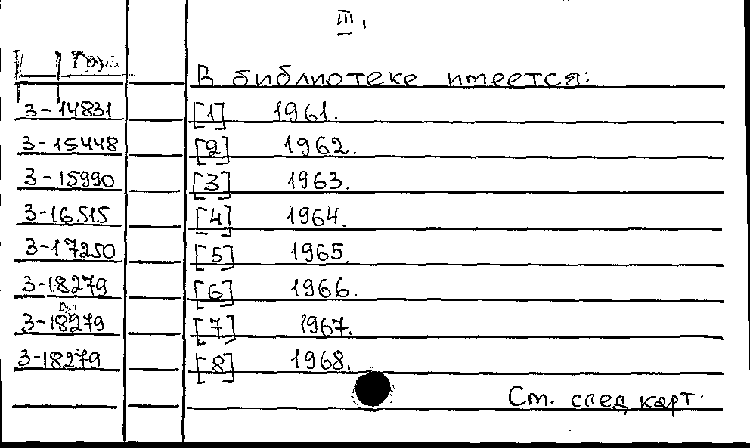 III,
В библиотеке имеется:
3-14831 [1] 1961.
3-15448 [2] 1962.
3-15990 [3] 1963.
3-16515 [4] 1964.
3-17250 [5] 1965.
3-18279 [6] 1966.
3-18279 [7] 1967.
3-18279 [8] 1968.
См. след карт.